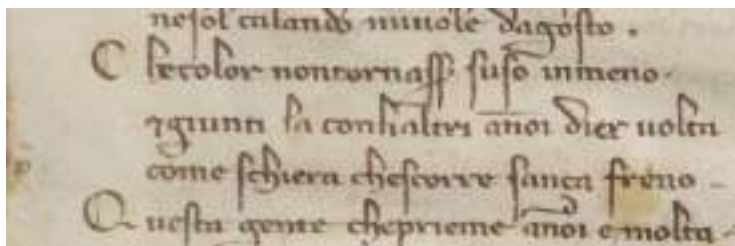 nesol calando nuuole dagosto .
C hecolor nontornass̄ suso inmeno.
⁊giunti la conlialtri anoi dier uolta
come schiera chescorre sança freno -
Q uesta gente cheprieme anoi e molta .